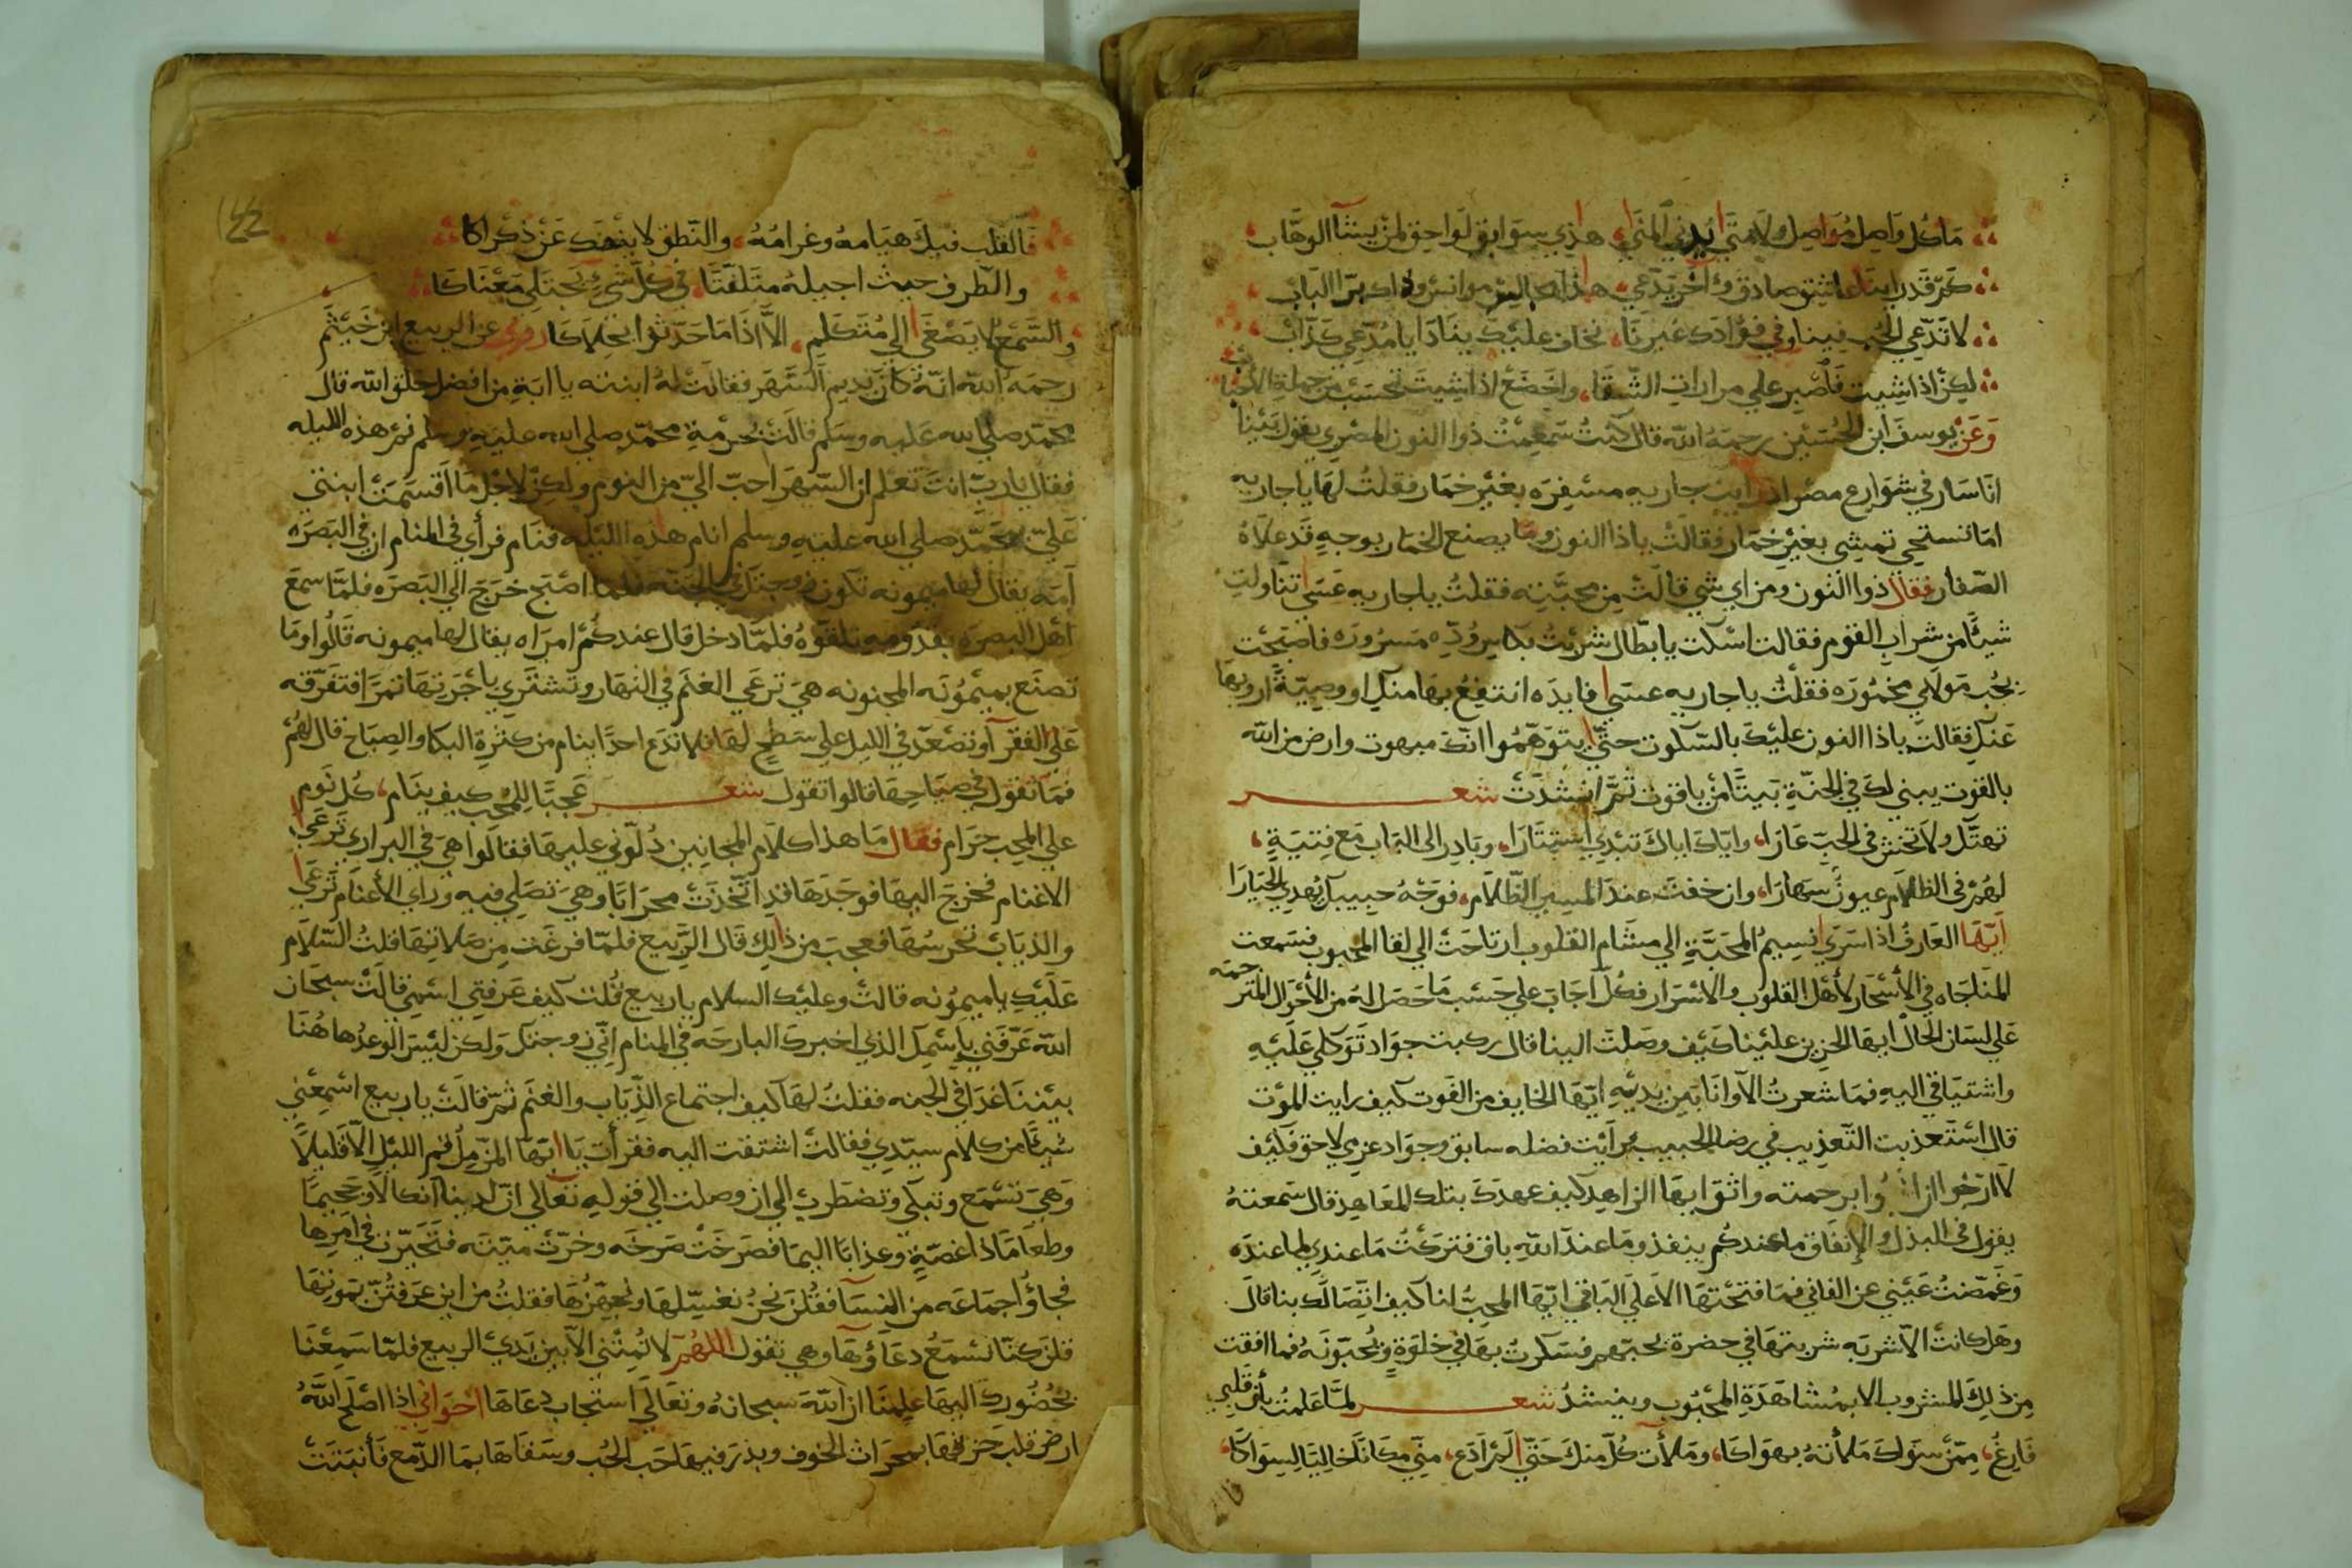 ما كل واصل مواصل ولا متى يدني المنى هذي سوابق لواحق لمن يشا الوهاب
كم قد راينا عاشق صادق وآخر يدعي هذا مجالس موانس وذاك برا الباب
لا تدعي الحب فينا وفي فؤادك غيرنا نخاف عليك ينادا يا مدعي كذاب
لكن اذا شيت فاصبر علي مرارات الشقا واخضع اذا شيت تحسب من جملة الأحباب
وعن يوسف ابن الحسين رحمه الله قال كنت سمعت ذوا النون المصري يقول بينا
انا سار في شوارع مصر اذ رايت جاريه مسفره بغير خمار فقلت لها يا جاريه
اما تستحي تمشي بغير خمار فقالت ياذا النون وما يصنع الخمار بوجه قد علاه
الصفار فقال ذوا النون ومن اي شي قالت من محبته فقلت يا جاريه عسى تناولت
شيئا من شراب القوم فقالت اسكت يا بطال شربت بكاس وده مسروره فاصبحت
بحب مولاي مخموره فقلت يا جاريه عسى فايده انتفع بها منك او وصية ارويها
عنك فقالت ياذا النون عليك بالسكوت حتى يتوهموا انك مبهوت وارض من الله
بالقوت يبني لك في الجنة بيتا من ياقوت ثم انشدت شعر
تهتك ولا تخش في الحب عارا واياك اياك تبدي استتارا وبادر الى الباب مع فتية
لهم في الظلام عيون سهارا وان خفت عند المسير الظلام فوجه حبيبك يهدي الحيارا
ايها العارف اذا سرى نسيم المحبة الي مشام القلوب ارتاحت الي لقا المحبوب فسمعت
المناجاه في الأسحار لأهل القلوب والاسرار فكل اجاب علي حسب ما حصل له من الأحوال المترحمه
علي لسان الحال ايها الحزين علينا كيف وصلت الينا قال ركبت جواد توكلي عليه
واشتياقي اليه فما شعرت الا وانا بين يديه ايها الخايف من الفوت كيف رايت الموت
قال استعذبت التعذيب في رضا الحبيب فرايت فضله سابق وجواد عزمي لاحق فكيف
لا ارجوا وابر رحمته واثق ايها الزاهد كيف عهدك بتلك المعاهد قال سمعته
يقول في البذل والإنفاق ما عندكم ينفذ وما عند الله باق فتركت ما عندي لما عنده
وغمضت عيني عن الفاني فما فتحتها الا على الباقي ايها المحب لنا كيف اتصالك بنا قال
وهل كانت الا شربه شربتها في حضرة يحبهم فسكرت بها في خلوة ويحبونه فما افقت
من ذلك المشروب الا بمشاهدة المحبوب وينشد شعر لما علمت بأن قلبي
فارغ ممن سواك ملأته بهواكا وملأت كل منك حتى لم ادع مني مكانا خاليا لسواكا
فالقلب فيك هيامه وغرامه والنطق لا ينفك عن ذكراكا
والطرف حيث اجيله متلفتا في كل شيء يجتلي معناكا
والسمع لا يصغى الي متكلم الا اذا ما حدثوا بحلاكا روي عن الربيع ابن خيثم
رحمه الله انه كان يديم السهر فقالت له ابنته يا ابة من افضل خلق الله قال
محمد صلي الله عليه وسلم قالت بحرمة محمد صلي الله عليه وسلم نم هذه الليله
فقال يا رب انت تعلم ان السهر احب الي من النوم ولكن لاجل ما اقسمت ابنتي
علي بمحمد صلي الله عليه وسلم انام هذه الليله فنام فرأي في المنام ان في البصره
امه يقال لها ميمونه تكون زوجتك في الجنة فلما اصبح خرج الي البصره فلما سمع
اهل البصره بقدومه تلقوه فلما دخل قال عندكم امراه يقال لها ميمونه قالوا وما
تصنع بميمونه المجنونه هي ترعي الغنم في النهار وتشتري باجرتها تمرا فتفرقه
علي الفقرآ وتصعد في الليل علي سطح لها فلا تدع احدا ينام من كثرة البكا والصياح قال لهم
فما تقول في صياحها قالوا تقول شعر عجبا للمحب كيف ينام كل نوم
علي المحب حرام فقال ما هذا كلام المجانين دلوني عليها فقالوا هي في البراري ترعي
الاغنام فخرج اليها فوجدها قد اتخذت محرابا وهي تصلي فيه وراي الأغنام ترعى
والذياب تحرسها فعجب من ذلك قال الربيع فلما فرغت من صلاتها قلت السلام
عليك يا ميمونه قالت وعليك السلام يا ربيع قلت كيف عرفتي اسمي قالت سبحان
الله عرفني باسمك الذي اخبرك البارحه في المنام اني زوجتك ولكن ليس الوعد هاهنا
بيننا غدا في الجنه فقلت لها كيف اجتماع الذياب والغنم ثم قالت يا ربيع اسمعني
شيئا من كلام سيدي فقالت اشتقت اليه فقرأت يا ايها المزمل قم الليل الا قليلا
وهي تسمع وتبكي وتضطرب الي ان وصلت الي قوله تعالي ان لدينا انكالا وجحيما
وطعاما ذا غصة وعذابا اليما فصرخت صرخه وخرت ميته فتحيرت في امرها
فجاؤا جماعه من النسآ فقلن نحن نغسلها ونجهزها فقلت من اين عرفتن بموتها
قلن كنا نسمع دعاؤها وهي تقول اللهم لا تمتني الا بين يدي الربيع فلما سمعنا
بحضورك اليها علمنا ان الله سبحانه وتعالي استجاب دعاها اخواني اذا اصلح الله
ارض قلب حزنها بمحراث الخوف وبذر فيها حب الحب وسقاها بما الدمع فأنبتت